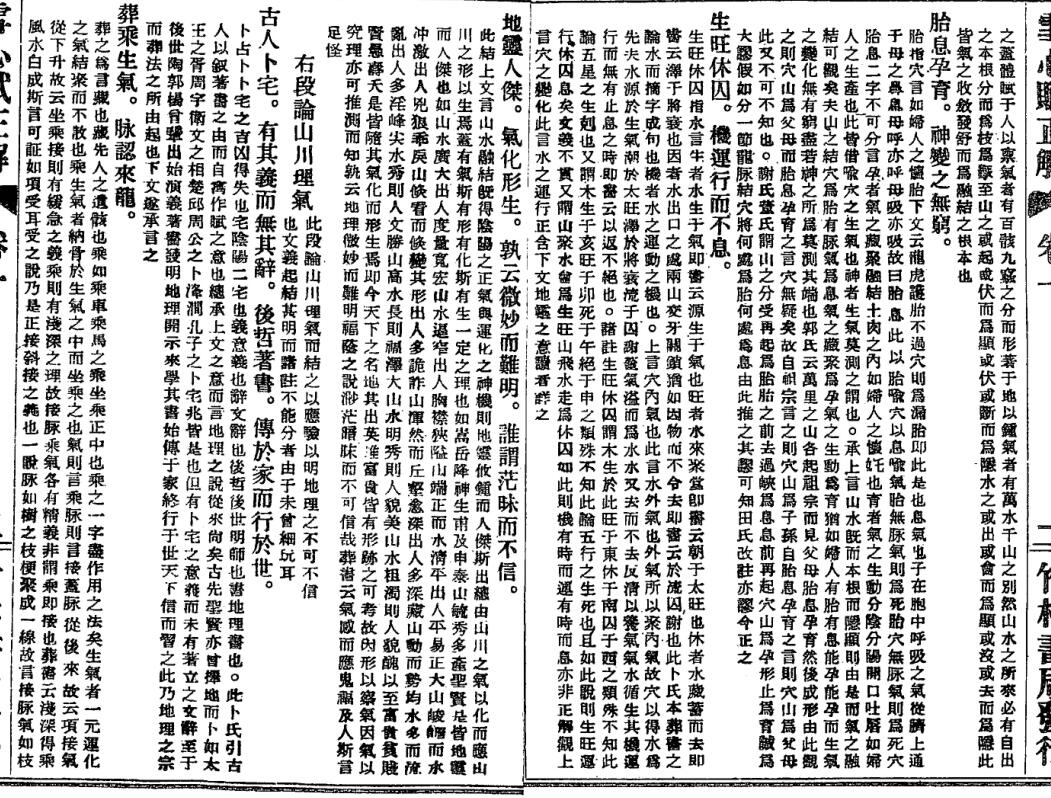 雪心賦正解　卷一　二　竹林書局發行
之蓋體賦于人以稟氣者有百骸九竅之分而形著于地以鍾氣者有萬水千山之別然山水之所來必有自出
之本根分而爲枝爲派至山之或起或伏而爲顯或伏或斷而爲隱水之或出或會而爲顯或沒或去而爲隱此
皆氣之收斂發舒而爲融結之根本也
胎息孕育。神變之無窮。
胎指穴言如婦人之懷胎下文云龍虎護胎不過穴則爲漏胎即此是也息氣也子在胞中呼吸之氣從臍上通
于母之鼻息母呼亦呼母吸亦吸故曰胎息此以胎喻穴以息喻氣胎無脉氣則爲死胎穴無脉氣則爲死穴
胎息二字不可分言孕者氣之藏聚融結土肉之內如婦人之懷妊也育者氣之生動分陰分陽開口吐唇如婦
人之生產也此皆借喻穴之生氣也神者生氣莫測之謂也。承上言山水旣而本根而隱顯則由是而氣之融
結可觀矣夫山之結穴爲胎有脉氣爲息氣之藏聚爲孕氣之生動爲育猶如婦人有胎有息能孕能育而生氣
之變化無有窮盡若神之所爲莫測其端也郭氏云萬里之山各起祖宗而見父母胎息孕育然後成形由此觀
之則穴山爲父母而胎息孕育之言穴無疑矣故自祖宗言之則穴山爲子孫自胎息孕育之言則穴山爲父母
此又不可不知也。謝氏葉氏謂山之分受再起爲胎胎之前去過峽爲息息前再起穴山爲孕形止爲育誠爲
大謬假如分一節龍脉結穴將何處爲胎何處爲息由此推之其謬可知田氏改註亦謬今正之
生旺休囚。機運行而不息。
生旺休囚指水言生者水生于氣即葬書云源生于氣也旺者水來聚堂即葬書云朝于太旺也休者水藏蓄而去即
葬書云澤于將衰也因者水出口之處兩山交牙關鎖猶如囚物而不令去即葬書云於流囚謝也此卜氏本葬書之
論水而摘字成句也機者水之運動之機也。上言穴內氣也此言水外氣也外氣所以聚內氣故穴以得水爲
先夫水源於生氣潮於太旺澤於將衰流于囚謝養氣氣溢而爲水水又去而不去反清以養氣氣水循生其機運
行而無有止息之時即葬書云以返不絕。諸註生旺休囚謂木生於此旺于東休于南囚于西之類殊不知此
論五星之生剋也又謂木生于亥旺于卯死于午絕于申之類殊不知此論五行之生死也且如此說則生旺運
行休囚息矣文義不貫又謂山聚水會爲生旺山飛水走爲休囚如此則機有時而運有時而息亦非正解觀上
言穴之變化此言水之運行正含下文地靈之意讀者詳之
地靈人傑。氣化形生。孰云微妙而難明。誰謂茫昧而不信。
此結上文言山水融結旣得陰陽之正氣與運化之神機則地靈攸鍾而人傑斯出總由山川之氣以化而應山
川之形以生焉蓋有氣斯有形有化斯有生一定之理也如嵩岳降神生甫及申泰山毓秀多產聖賢是皆地靈
而人傑也如山水廣大出人度量寬宏山水逼窄出人胸襟狹隘山端正而水清平出人平易正大山峻嶒而水
冲激出人兇狠乖戾山倐看而倐變其形出人多詭詐山渾然而丘壑愈深出人多深藏山動而勢均水多而流
亂出人多淫峰尖水秀則人文勝山高水長則福澤大山水明秀則人貌美山水粗濁則人貌醜以至富貴貧賤
賢愚壽夭是皆隨其氣化而形生焉即今天下之名地其出英雄富貴皆有形跡之可考故因形以察氣因氣以
究理亦可推測而知孰云地理微妙而難明福蔭之說渺茫暗昧而不可信哉葬書云氣感而應鬼福及人斯言
足怪
右段論山川理氣　此段論山川理氣而結之以應驗以明地理之不可不信
也文義起結甚明而諸註不能分者由于未曾細玩耳
古人卜宅。有其義而無其辭。後哲著書。傳於家而行於世。
卜占卜卜宅之吉凶得失也宅陰陽二宅也義意義也辭文辭也後哲後世明師也書地理書也。此卜氏引古
人以叙著書之由而自寓作賦之意也總承上文之意而言地理之說從來尚矣古先聖賢亦曾擇地而卜如太
王之胥周宇衛文之相楚邱周公之卜澗孔子之卜宅兆皆是也但有卜宅之意義而未有著立之文辭至于
後世陶郭楊曾輩出始演義著書發明地理開示來學其書始傳于家終行于世天下信而習之此乃地理之宗
而葬法之所由起也下文遂承言之
葬乘生氣。脉認來龍。
葬之爲言藏也藏先人之遺骸也乘如乘車乘馬之乘坐乘正中也乘之一字盡作用之法矣生氣者一元運化
之氣結聚而不散止也乘生氣者納骨於生氣之中而坐乘之也氣則言乘脉則言接蓋脉從後來故云項接氣
從下升故云坐乘接則有緩急之義乘則有淺深之理故接脉乘氣各有精義非謂乘即接也葬書云淺深得乘
風水白成斯言可証如項受耳受之說乃是正接斜接之義也一說脉如樹之枝梗聚成一線故言接脉氣如枝